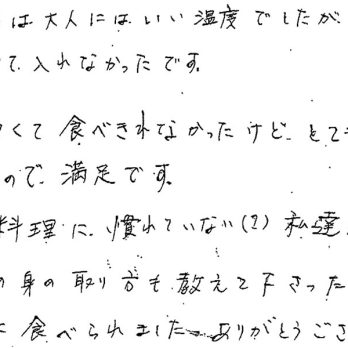 は大人にはいい温度でしたが、
て入れなかったです。
くて食べきれなかったけど、とて
ので、満足です。
料理に、慣れていない(?)私達
の身の取り方も教えて下さった
食べられました。ありがとうござ